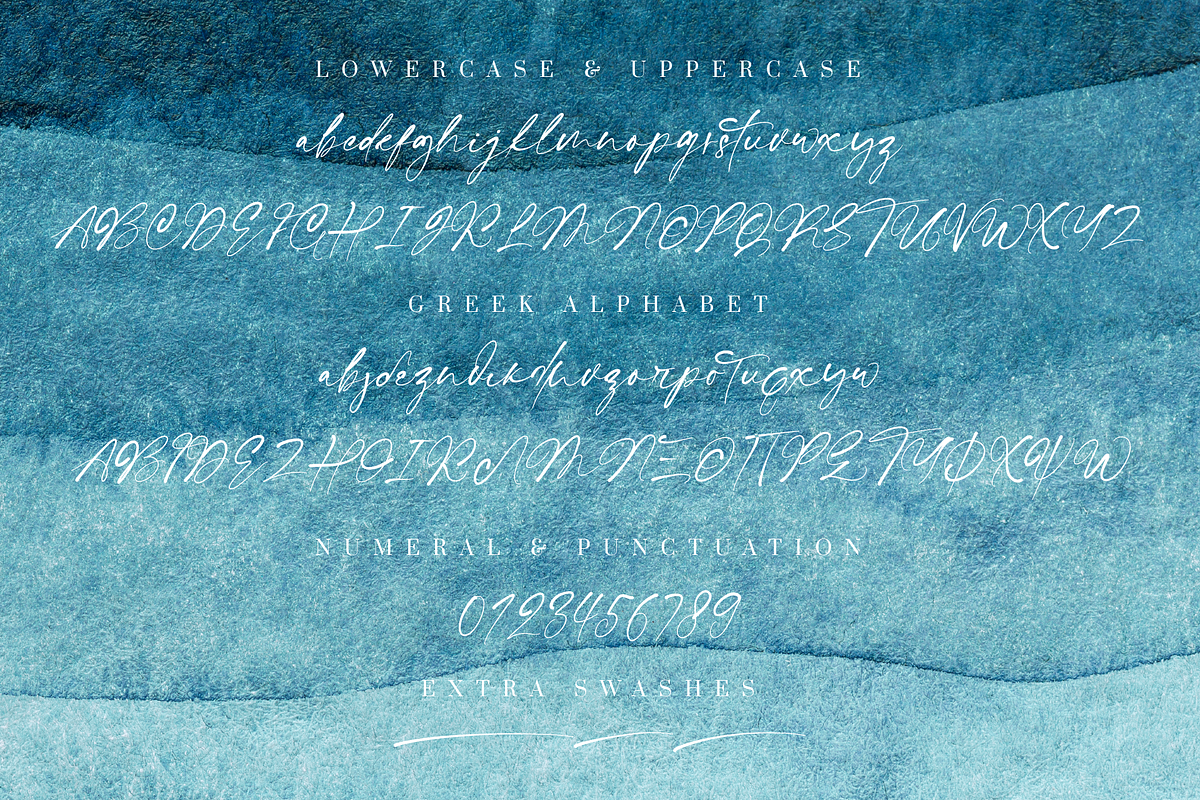 LOWERCASE & UPPERCASE
abcdefghijklmnopqrstuvwxyz
ABCDEFGHIJKLMNOPQRSTUVWXYZ
GREEK ALPHABET
αβγδεζηθικλμνξοπρσςτυφχψω
ΑΒΓΔΕΖΗΘΙΚΛΜΝΞΟΠΡΣΤΥΦΧΨΩ
NUMERAL & PUNCTUATION
0123456789
EXTRA SWASHES